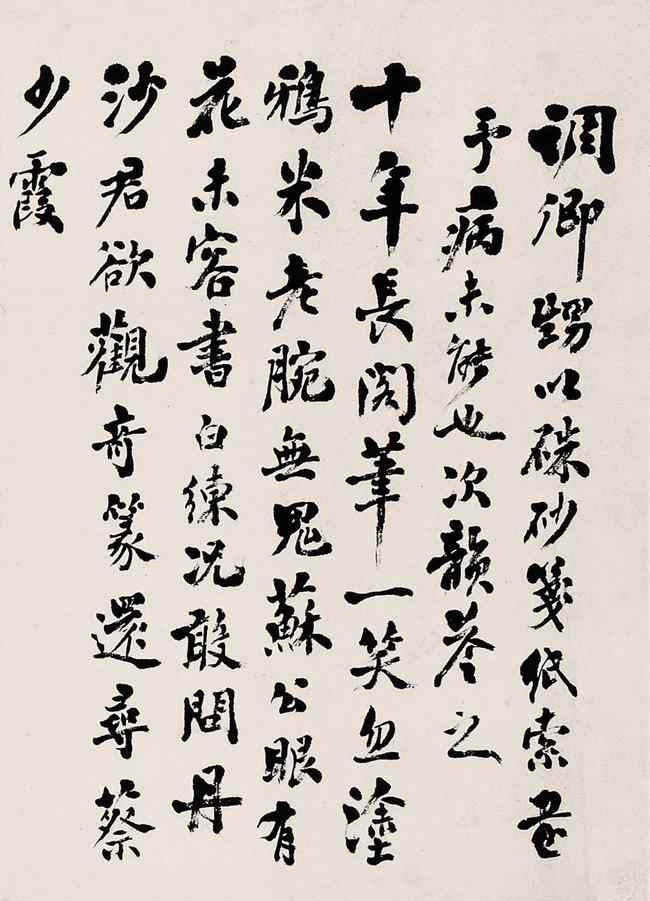 調卿甥以硃砂箋紙索書
予病未能也次韻荅之
十年長閣筆一笑忽塗
鴉米老腕無鬼蘇公眼有
花未容書白練况敢問丹
沙君欲觀奇篆還尋蔡
少霞